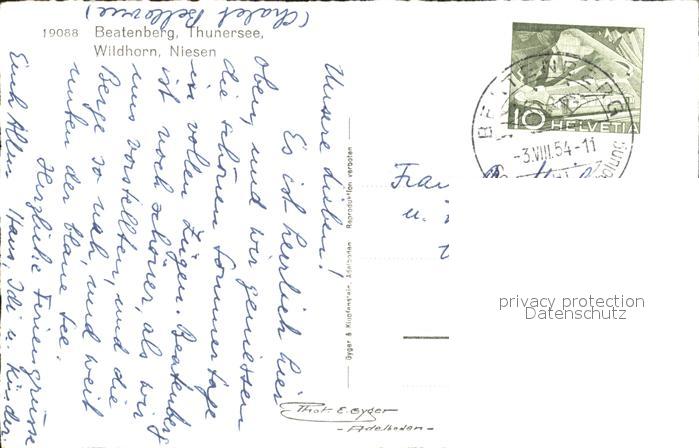 19088 Beatenberg, Thunersee,
Wildhorn, Niesen
(Chalet Bellevue)
Unsere Lieben!
Es ist herrlich hier
oben, und wir geniessen
die schönen Sommertage
in vollen Zügen. Beatenberg
ist noch schöner, als wir
uns vorstellten, und die
Berge so nah, und weit
unten der blaue See.
Herzliche Feriengrüsse
Euch Allen Hans, Idi u. Kinder
Gyger & Klopfenstein, Adelboden Reproduktion verboten
Phot. E. Gyger
- Adelboden -
10 HELVETIA
BEATENBERG
-3.VIII.54-11
Frau
u.
privacy protection
Datenschutz